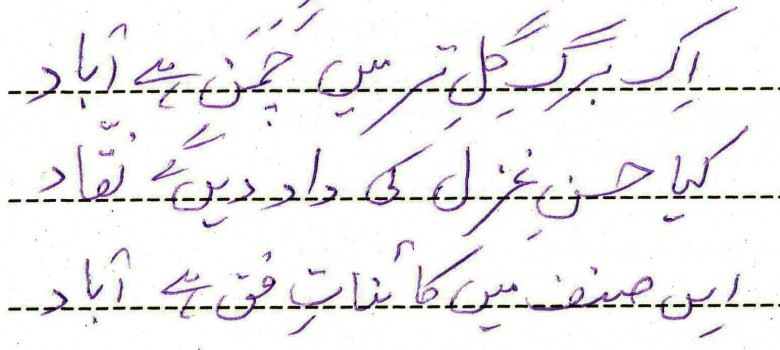 اِک برگِ گلِ تر میں چَمَن ہے آباد
کیا حسنِ غزل کی داد دیں گے نقّاد
اِس صنف میں کائناتِ فن ہے آباد